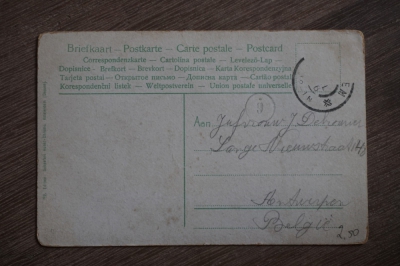 Briefkaart – Postkarte – Carte postale – Postcard
Correspondenzkarte – Cartolina postale – Levelező-Lap –
Dopisnice – Brefkort – Brevkort – Dopisnica – Karta Korespondencyjna
Tarjeta postal – Открытое письмо – Дописна карта –
Korespondenční lístek – Weltpostverein – Union postale universelle
Aan Jufvrouw J.
Lange Nieuwstraat
Antwerpen
België
2,50